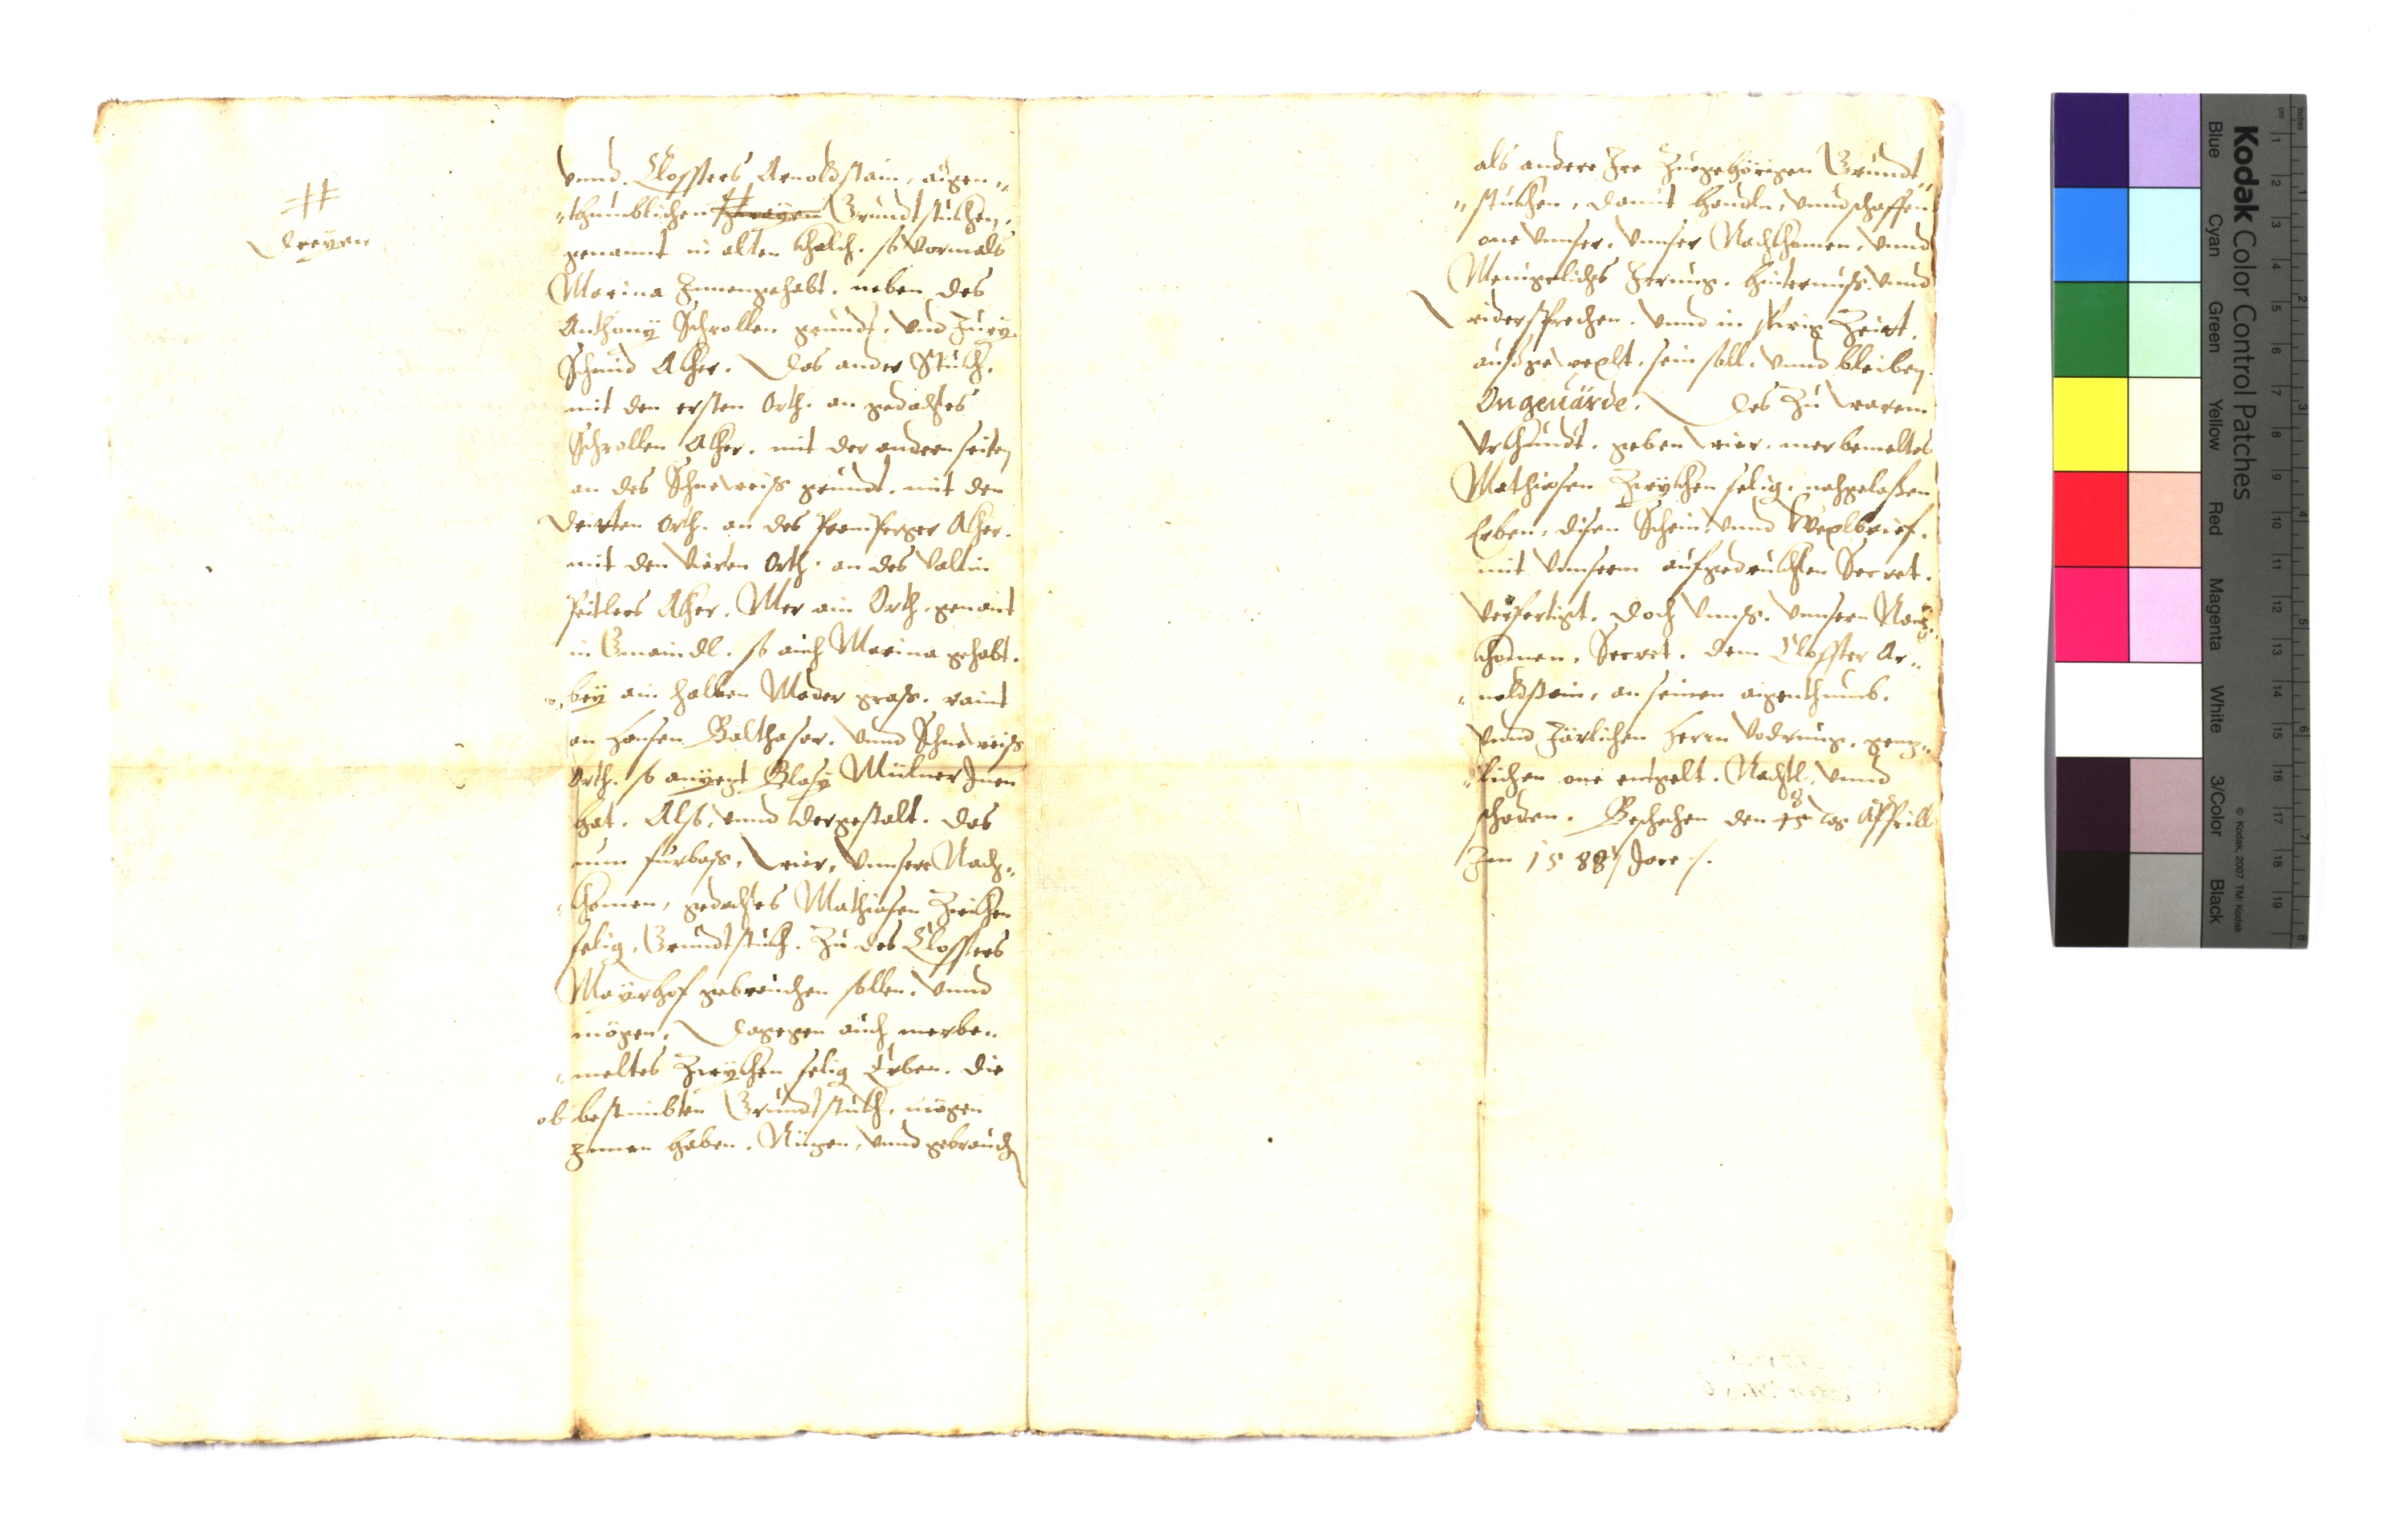 #
dreyen
vnnd Clossters Arnoldstain, aigen„
„thumblichen # zwayen Grundtstukhen,
genannt in alten khalch. so vormals
Marina Innengehabt. neben des
Anthony Schrollen grundt. vnd Jury
Schmid Akher. Das ander Stukh.
mit den ersten Orth. an gedachtes
Schrollen Akher. mit der andern seiten
an des Schneweiss grundt. mit den
dritten Orth. an des Akher.
mit den vierten Orth. an des Valtin
Akher. Mer ain Orth. genant
in Gmaindl. so auch Marina gehabt.
bey ain halben Mader grass. raint
an Hansen Balthasar. vnnd Schneweiss
Orth. so anyezt Blasy Mülner Innen
hat. Also, vnnd dergestalt. das
nun fürbass, wier, vnnsere Nach„
„khomen, gedachtes Mathiasen Zwikhen
selig, Grundtstukh. Zu des Clossters
Mayrhof gebrauchen sollen. vnnd
mögen. Dagegen auch merbe„
„meltes Zwykhen selig Erben. die
ob bestimbten Grundtstukh, mögen
Innen haben. Nüzen, vnnd gebrauch
als andere Ire Zuegehörigen Grundt„
„stukhen, damit handln, vnnd schaffen
one vnnser. vnnser Nachkhomen. vnnd
Menigeliches Irrung. hinternuss. vnnd
widersprechen. vnnd in Zeit.
aussgewexlt. sein soll. vnnd bleiben.
Ongeuärde. Des Zu warem
Vrkhundt. geben wier. merbemeltes
Mathiasen Zwykhen selig. nachgelassen
Erben, disen Schein vnnd Wexlbrief.
mit vnnserm aufgedrukhten Secret.
verfertigt. doch vnns. vnnsern Nach„
khomen. Secret. dem Closster Ar„
„noldstain, an seinen aigenthumb.
vnnd Järlichen Herrn vodrung. genz„
„lichen one entgelt. Nachtl. vnnd
schaden. Beschehen den 15 8 tag Apprill
Im 1588 Jare /.